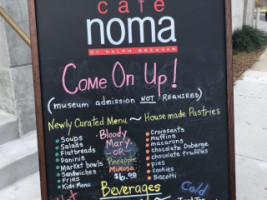 café
noma
BY RALPH BRENNAN
COME ON UP!
(museum admission NOT REQUIRED)
Newly Curated Menu ~ House made Pastries
Soups
Salads
Flatbreads
Paninis
Market bowls
Sandwiches
Fries
Kids Menu
Bloody
Mary
-OR-
Pineapple
Mimosa
$6.00
Croissants
Muffins
macarons
Chocolate Doberge
chocolate truffles
pies
cookies
Biscotti
Beverages
Hot
Cold